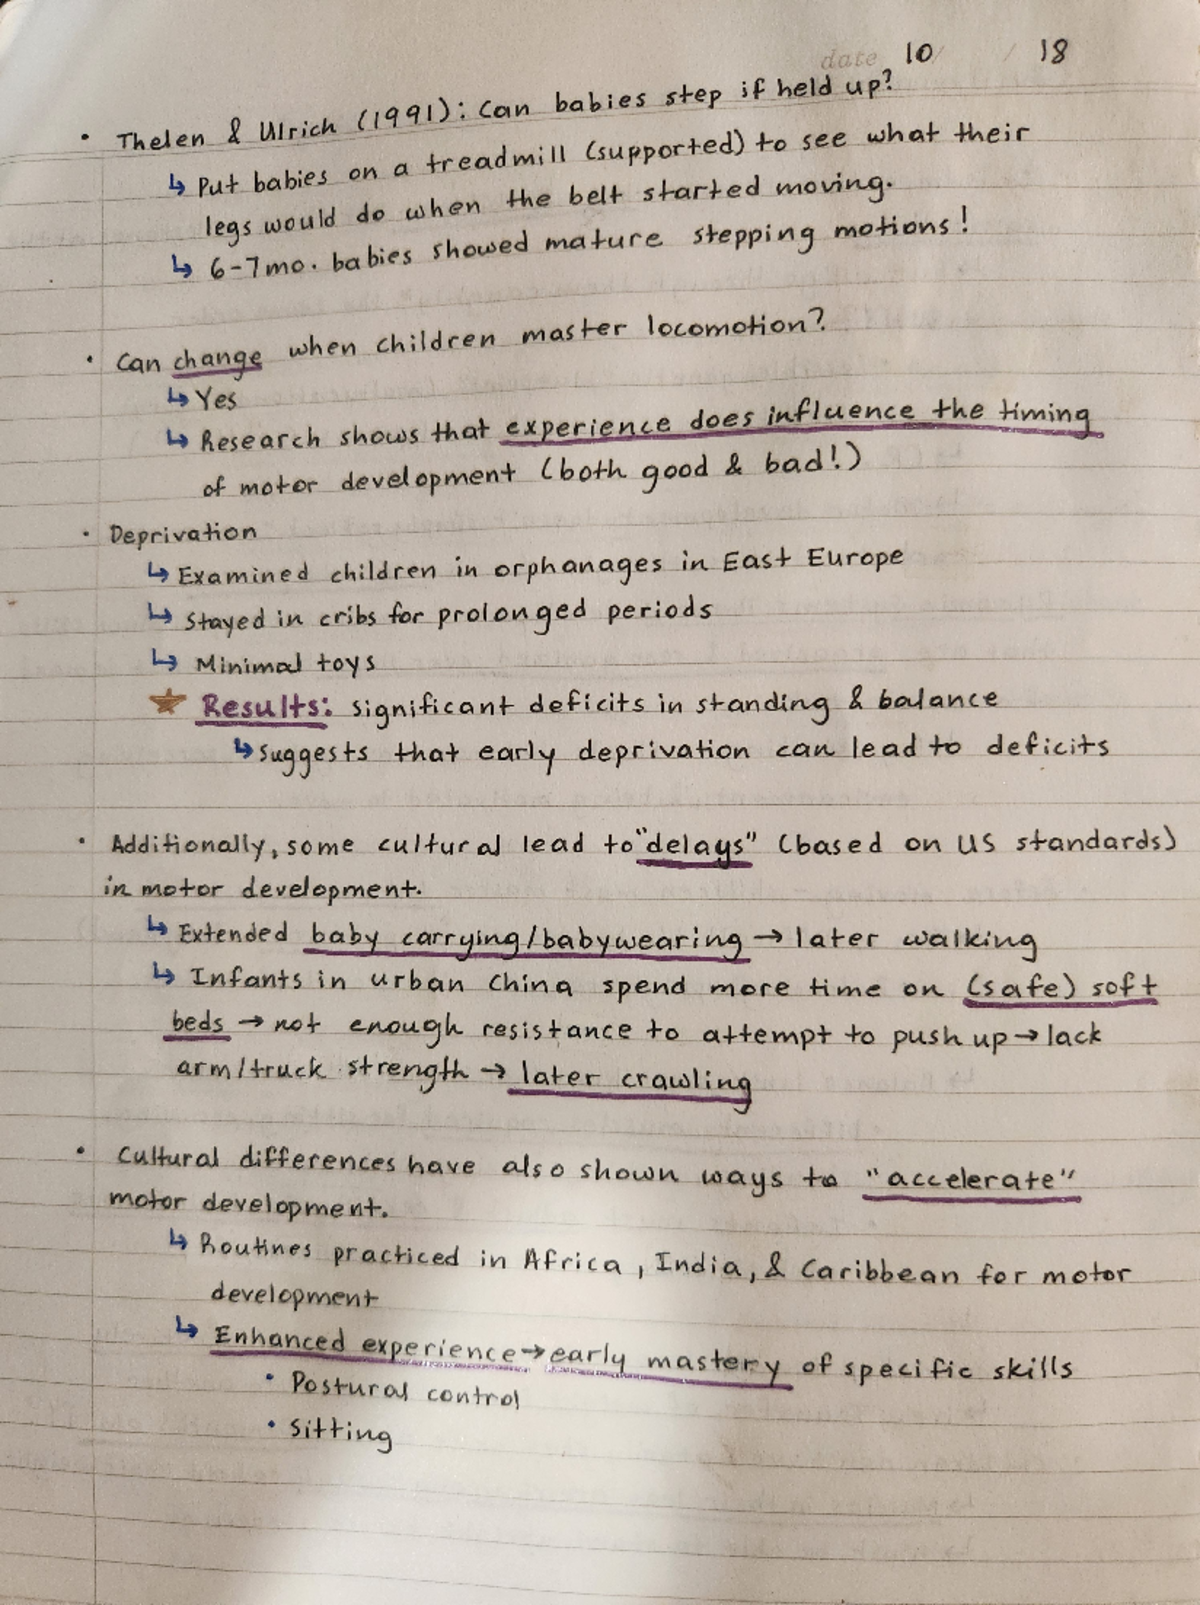 date 10/ / 18
• Thelen & Ulrich (1991): Can babies step if held up?
↳ Put babies on a treadmill (supported) to see what their
legs would do when the belt started moving.
↳ 6-7mo. babies showed mature stepping motions!
• Can change when children master locomotion?
↳ Yes
↳ Research shows that experience does influence the timing
of motor development (both good & bad!)
• Deprivation
↳ Examined children in orphanages in East Europe
↳ Stayed in cribs for prolonged periods
↳ Minimal toys
★ Results: significant deficits in standing & balance
↳ suggests that early deprivation can lead to deficits
• Additionally, some cultural lead to "delays" (based on US standards)
in motor development.
↳ Extended baby carrying/babywearing → later walking
↳ Infants in urban China spend more time on (safe) soft
beds → not enough resistance to attempt to push up → lack
arm/truck strength → later crawling
• Cultural differences have also shown ways to "accelerate"
motor development.
↳ Routines practiced in Africa, India, & Caribbean for motor
development
↳ Enhanced experience → early mastery of specific skills
• Postural control
• Sitting